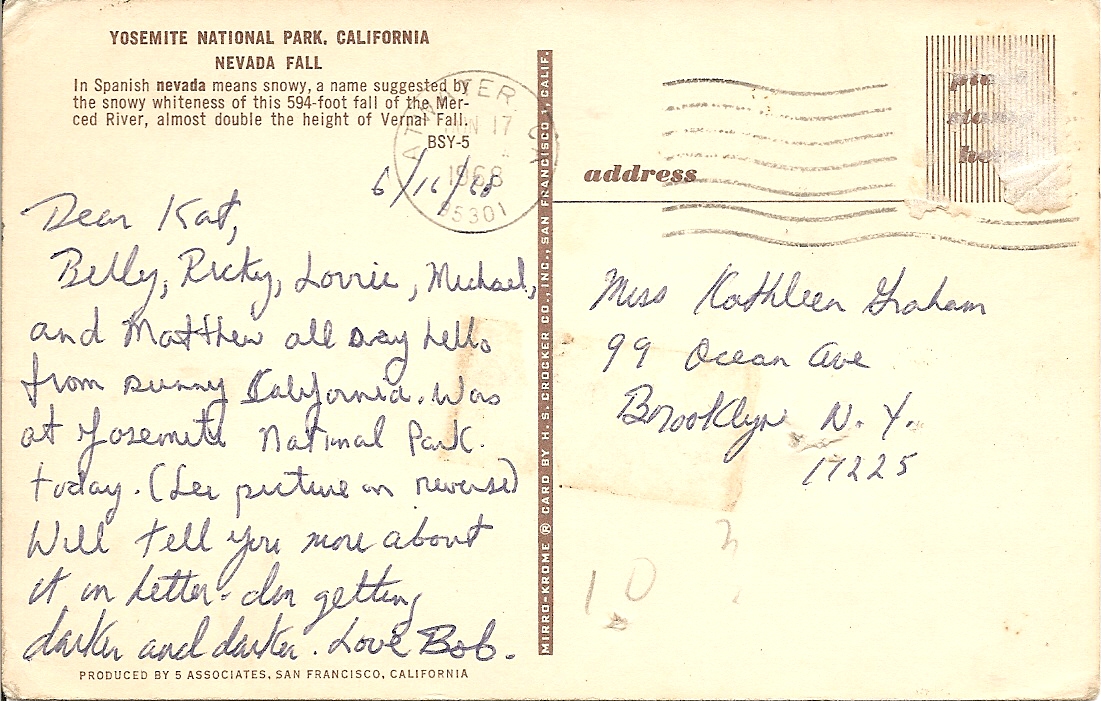 YOSEMITE NATIONAL PARK, CALIFORNIA
NEVADA FALL
In Spanish nevada means snowy, a name suggested by
the snowy whiteness of this 594-foot fall of the Mer-
ced River, almost double the height of Vernal Fall.
BSY-5
ATWATER, CA
JUN 17
1968
95301
6/16/68
Dear Kat,
Billy, Ricky, Lorrie, Michael,
and Matthew all say hello
from sunny California. Was
at Yosemite National Park
today. (See picture on reverse)
Will tell you more about
it in letter. Am getting
darker and darker. Love Bob.
PRODUCED BY 5 ASSOCIATES, SAN FRANCISCO, CALIFORNIA
MIRRO-KROME ® CARD BY H.S. CROCKER CO., INC., SAN FRANCISCO 1, CALIF.
address
place
stamp
here
Miss Kathleen Graham
99 Ocean Ave
Brooklyn N.Y.
11225
10